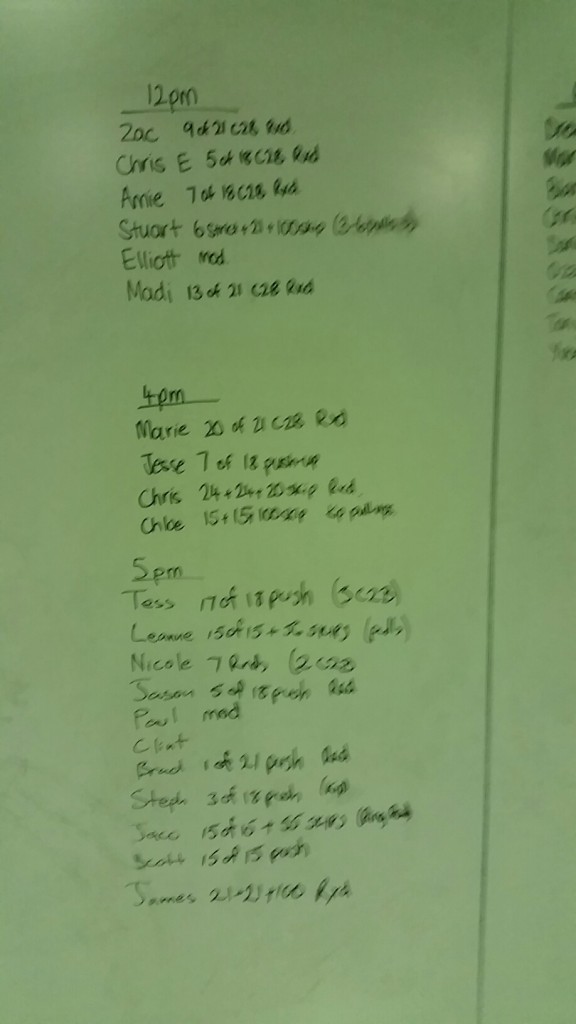 12pm
Zac 9 of 21 C2B Rxd
Chris E 5 of 18 C2B Rxd
Amie 7 of 18 C2B Rxd
Stuart 6 strict + 21 + 100 skip
Elliott mod
Madi 13 of 21 C2B Rxd
4pm
Marie 20 of 21 C2B Rxd
Jesse 7 of 18 push-up
Chris 24+24+20 skip Rxd
Chloe 15+15+100 skip
5pm
Tess 17 of 18 push (3 C2B)
Leanne 15 of 15 + skips (pulls)
Nicole 7 Rnds (2 C2B
Jason 5 of 18 push Rxd
Paul mod
Clint
Brad 1 of 21 push Rxd
Steph 3 of 18 push
Jaco 15 of 15 + 55 skips
Scott 15 of 15 push
James 21+21+100 Rxd